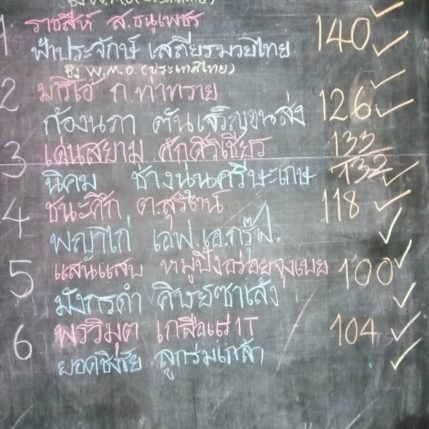 1 ราชสีห์ ส.ธนูเพชร 140
ฟ้าประจักษ์ เสถียรมวยไทย
ชิง W.M.O. (ประเทศไทย)
2 มาริโอ้ ก.ท่าทราย 126
ก้องนภา ตันเจริญขนส่ง
3 เด่นสยาม ศักศิริเชียร 133
นิคม ช้างนูนศรีษะเกษ 132
4 ธนะศึก ต.สุรัตน์ 118
พญาไก่ เอฟ.เอ.กรุ๊ฟ.
5 แสนแสบ หมูปิ้งอร่อยจุงเบย 100
มังกรดำ ศิษย์ซาเล้ง
6 พรวิมุต เกลือแร่1T 104
ยอดชิงชัย ลูกร่มเกล้า